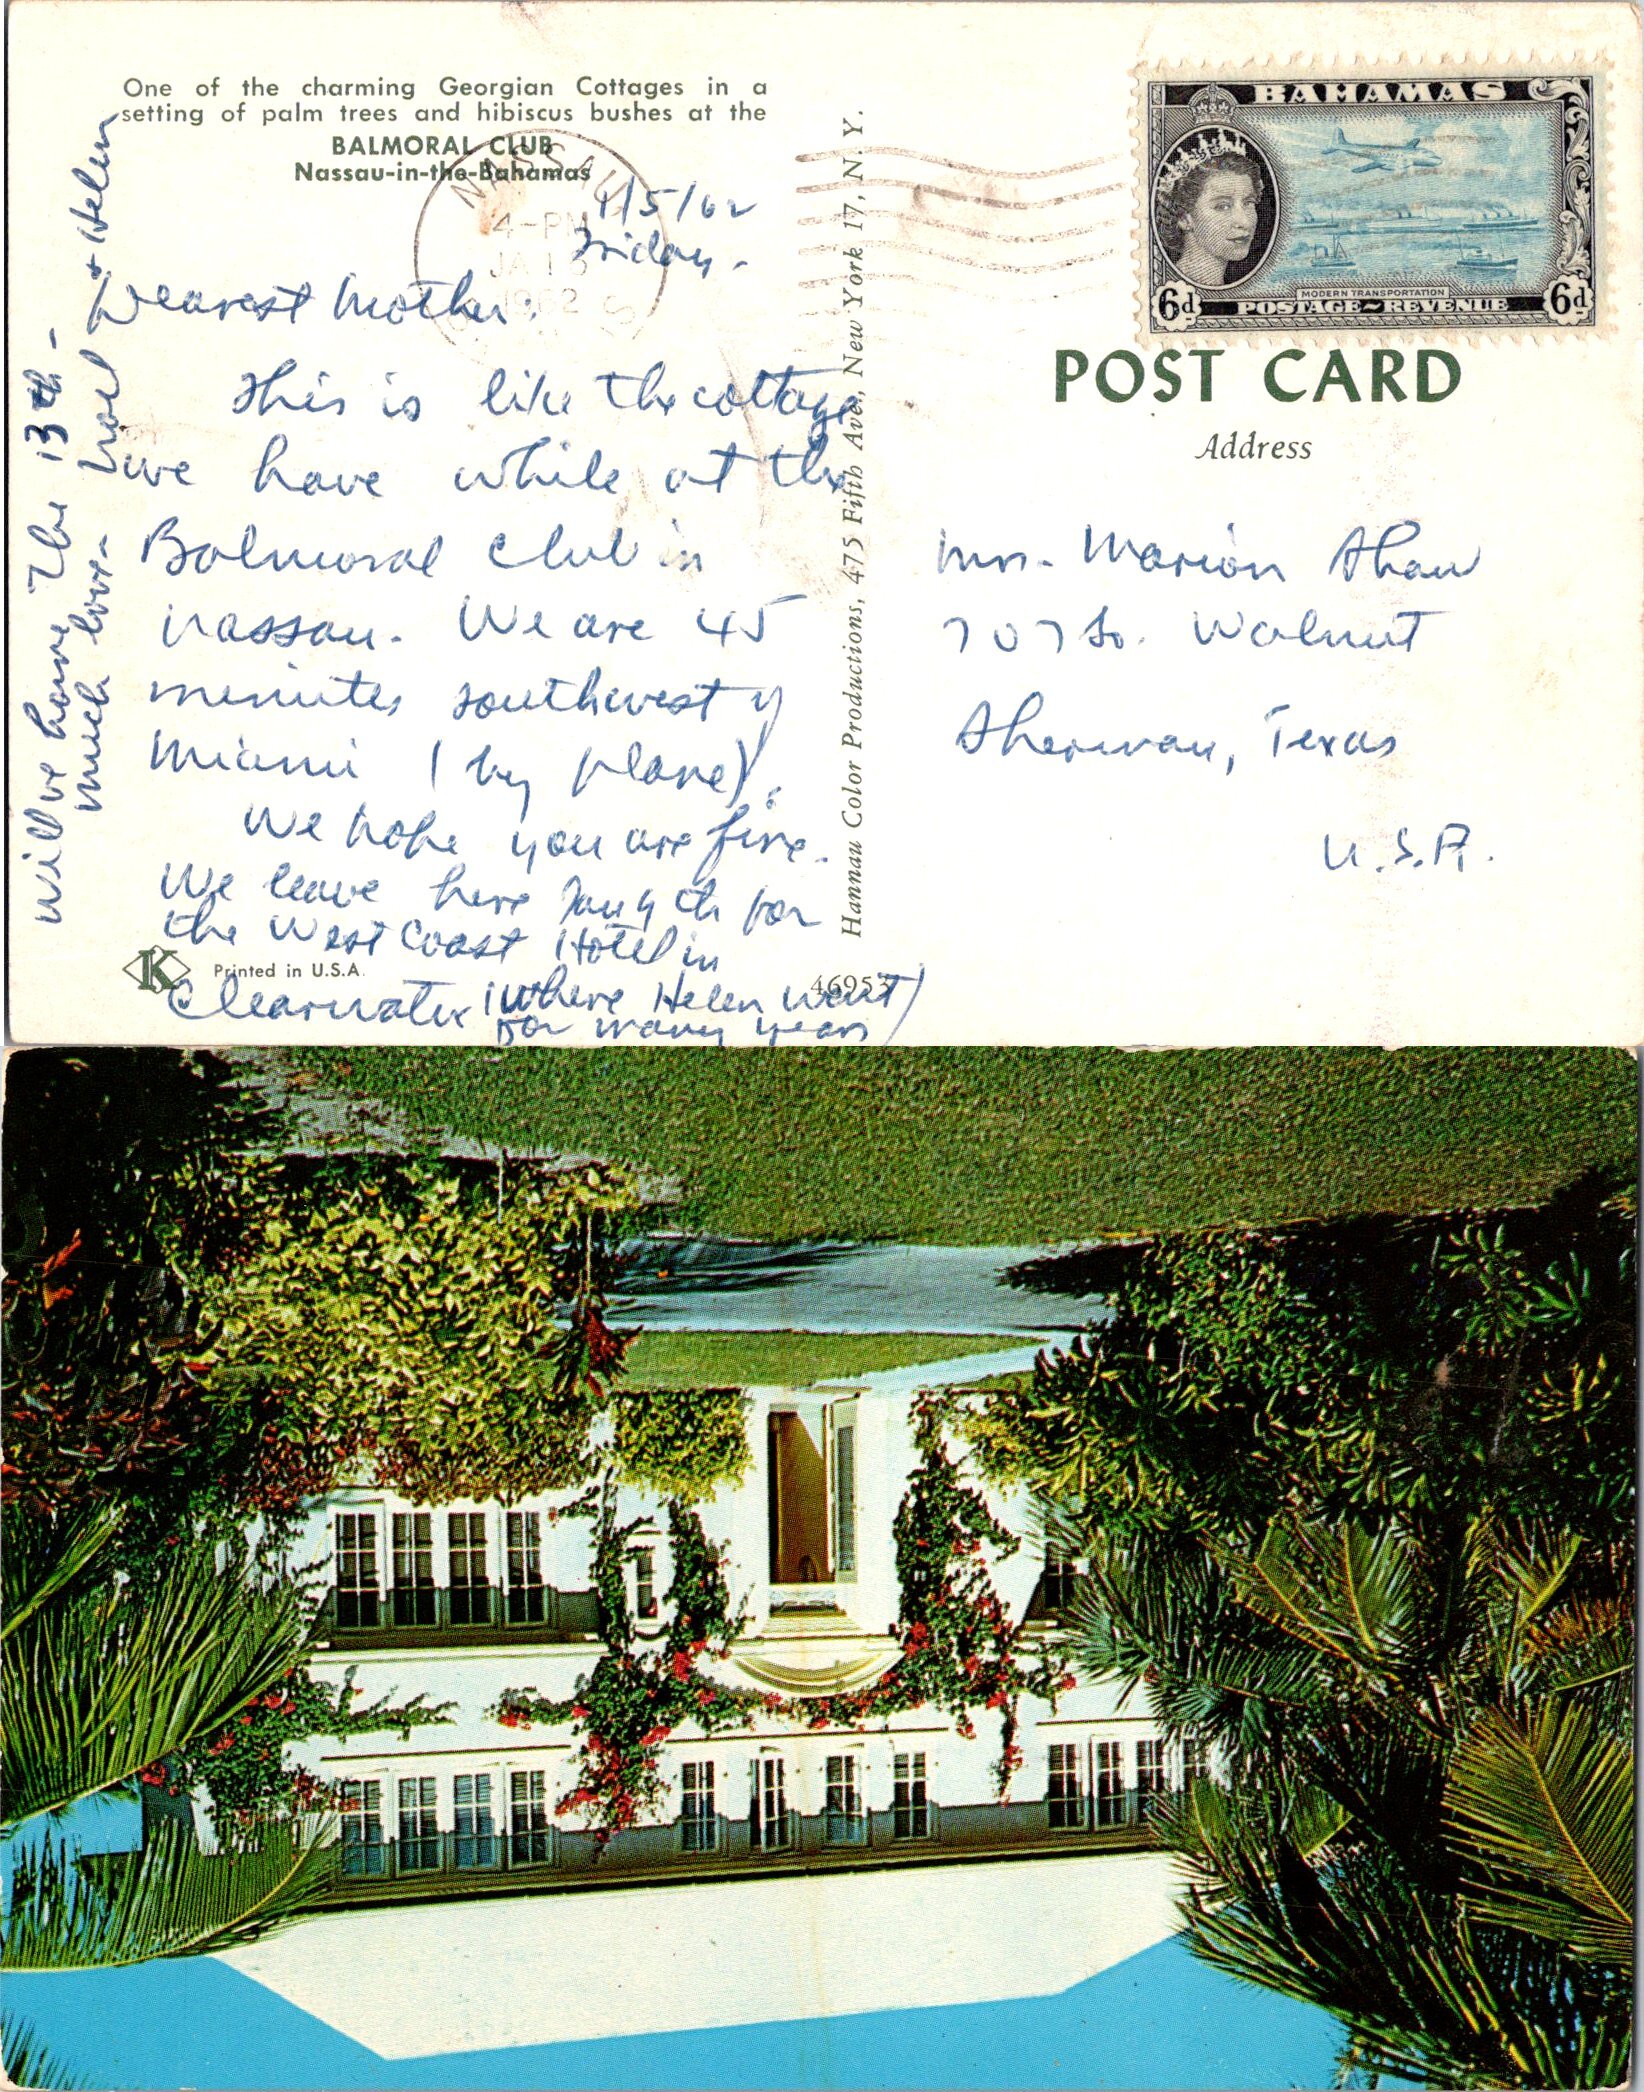 One of the charming Georgian Cottages in a
setting of palm trees and hibiscus bushes at the
BALMORAL CLUB
Nassau-in-the-Bahamas
NASSAU
4-PM
1962
1/5/62
Friday.
Dearest Mother:
This is like the cottage
we have while at the
Balmoral Club in
Nassau. We are 45
minutes southwest of
Miami (by plane).
We hope you are fine.
We leave here Jany 9th for
the West Coast Hotel in
Clearwater (where Helen went
for many years)
Will be home the 13th -
much love - Noel + Helen
Printed in U.S.A.
K
46953
Hannau Color Productions, 475 Fifth Ave., New York 17, N. Y.
BAHAMAS
MODERN TRANSPORTATION
6d POSTAGE~REVENUE 6d
POST CARD
Address
Mrs. Marion Shaw
707 So. Walnut
Sherman, Texas
U.S.A.